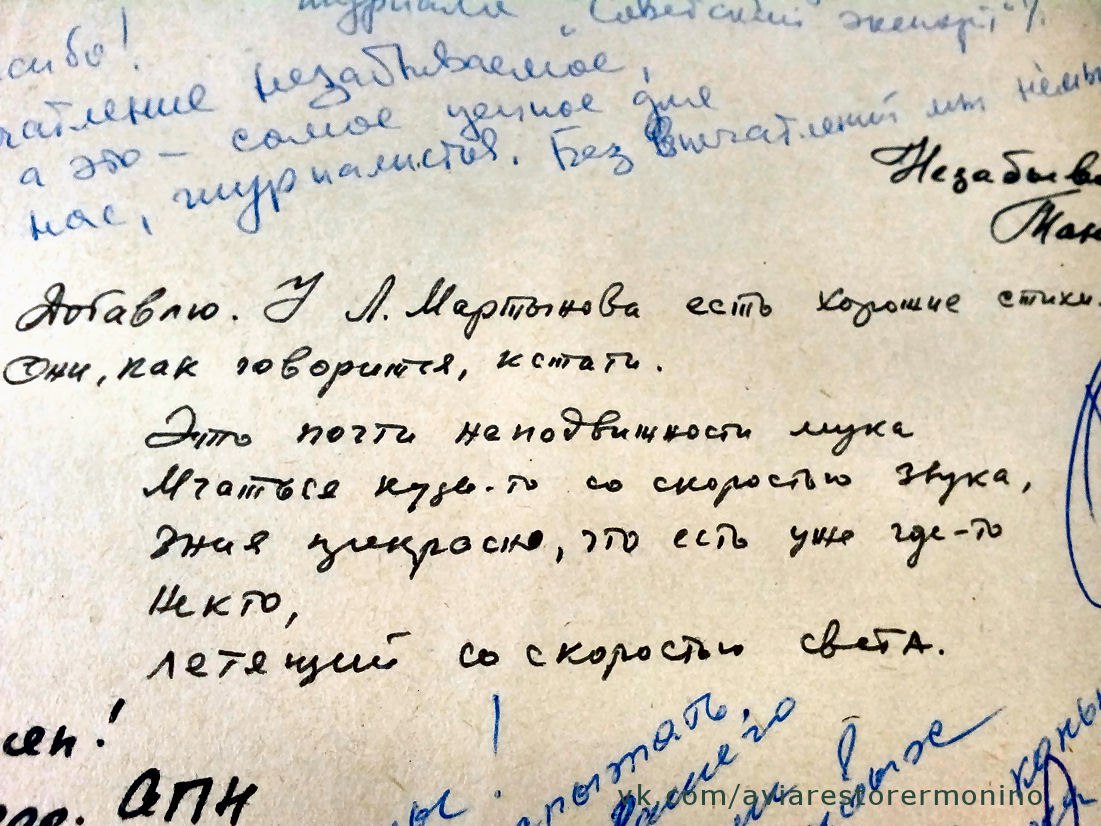 журнала "Советский экспорт".
сибо!
чатление незабываемое,
а это - самое ценное для
нас, журналистов. Без впечатлений мы немы
Незабыва
Добавлю. У Л. Мартынова есть хорошие стихи.
Они, как говорится, кстати.
Это почти неподвижности мука
Мчаться куда-то со скоростью звука,
Зная прекрасно, что есть уже где-то
Некто,
летящий со скоростью света.
сен!
АПН
vk.com/aviarestorermonino